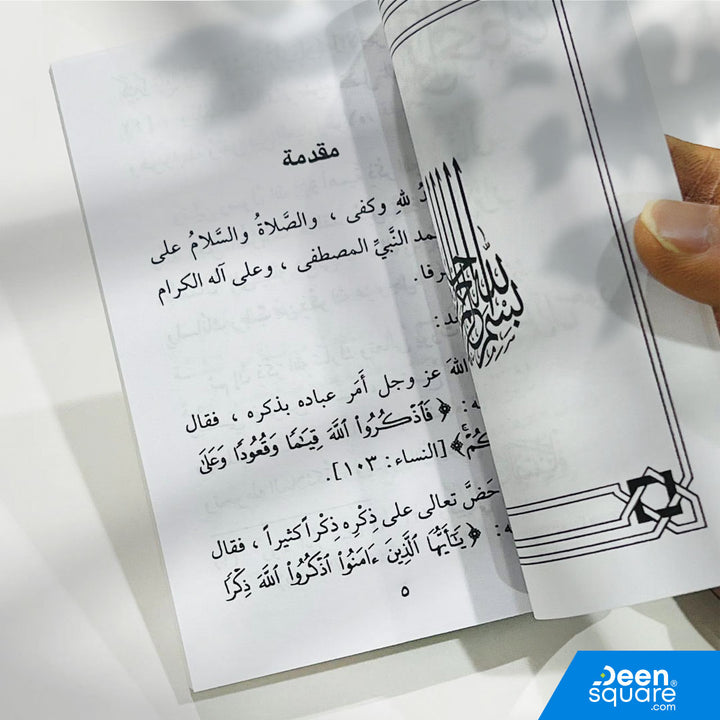 مقدمة
لله وكفى ، والصَّلاةُ والسَّلامُ على
النَّبيِّ المصطفى ، وعلى آله الكرام
اللهَ عز وجل أَمَر عباده بذكره ، فقال
﴿ فَٱذْكُرُوا۟ ٱللَّهَ قِيَـٰمًا وَقُعُودًا وَعَلَىٰ
﴾ [النساء: ١٠٣].
حَضَّ تعالى على ذِكْرِه ذِكْراً كثيراً ، فقال
﴿ يَـٰٓأَيُّهَا ٱلَّذِينَ ءَامَنُوا۟ ٱذْكُرُوا۟ ٱللَّهَ ذِكْرًا
٥
بسم الله
Deen
square®
.com